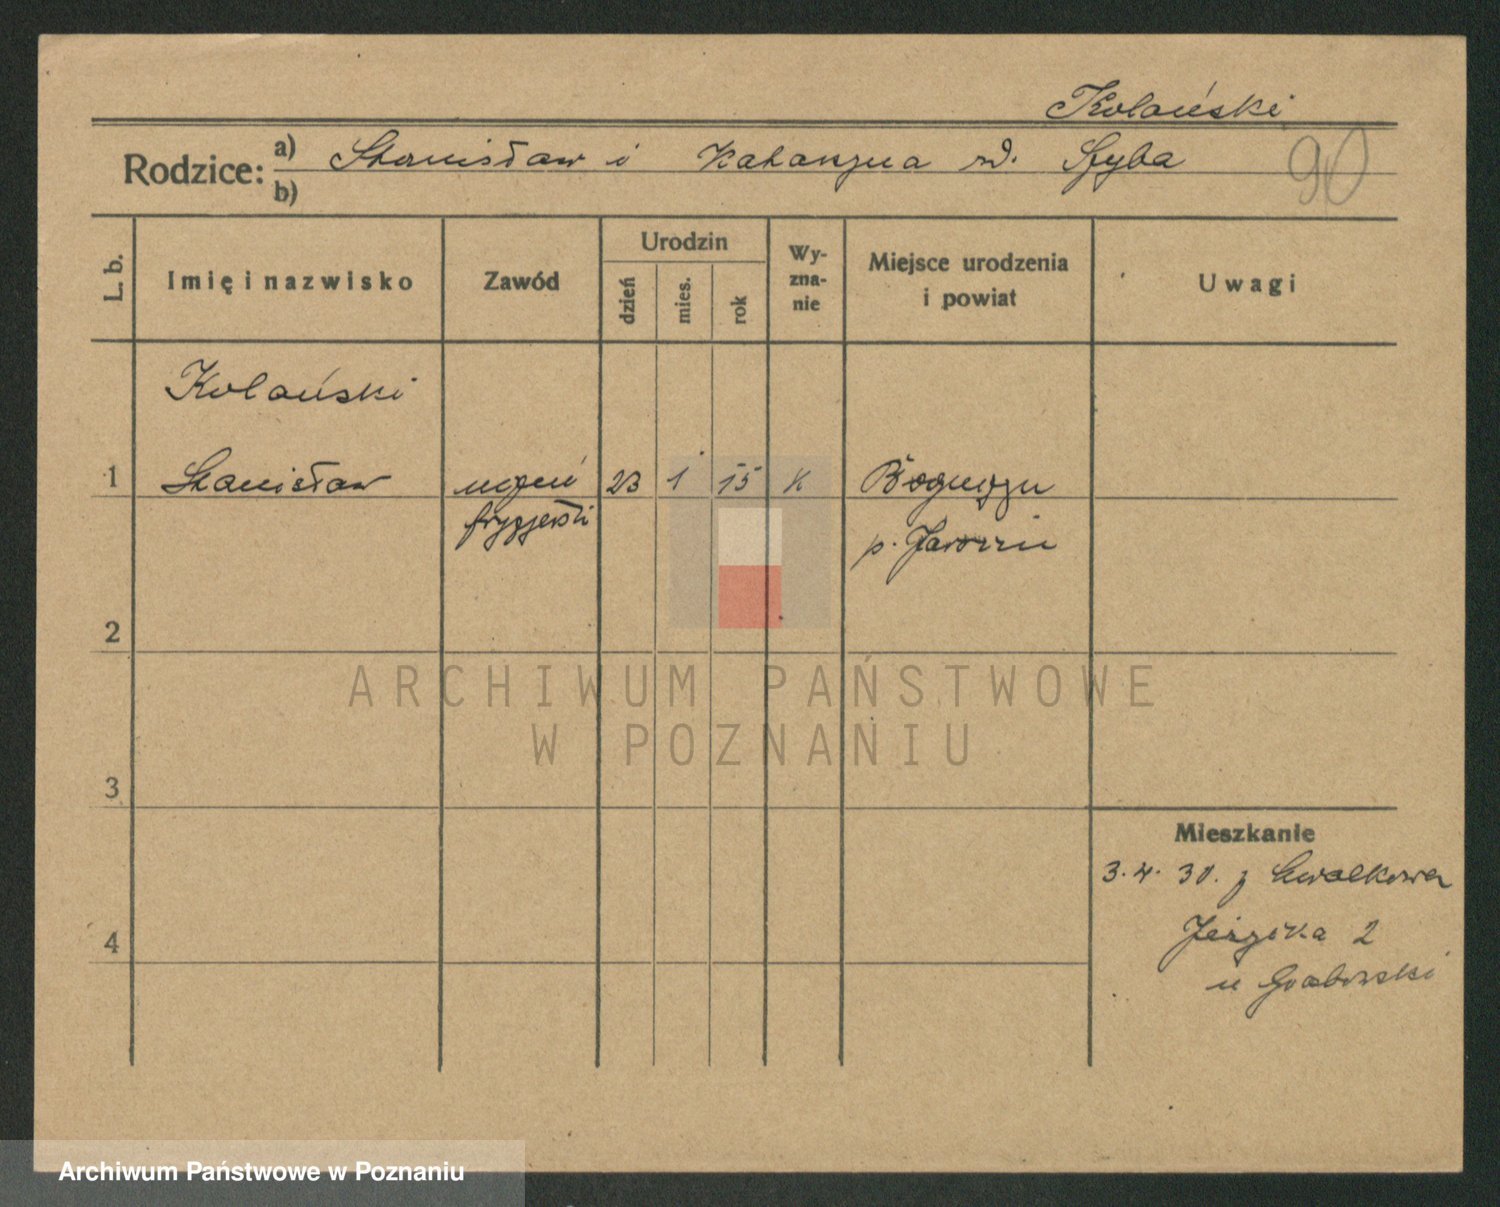 Kolański
Rodzice: a) Stanisław i Katarzyna zd. Szyba
b)
90
L. b.
Imię i nazwisko
Zawód
Urodzin
dzień
mies.
rok
Wy-
zna-
nie
Miejsce urodzenia
i powiat
Uwagi
Kolański
1 Stanisław uczeń 23 1 15 K Boguszyn
fryzjerski p. Jarocin
2
3
4
Mieszkanie
3.4.30. z
Jeżycka 2
u Grabowski
ARCHIWUM PAŃSTWOWE
W POZNANIU
Archiwum Państwowe w Poznaniu